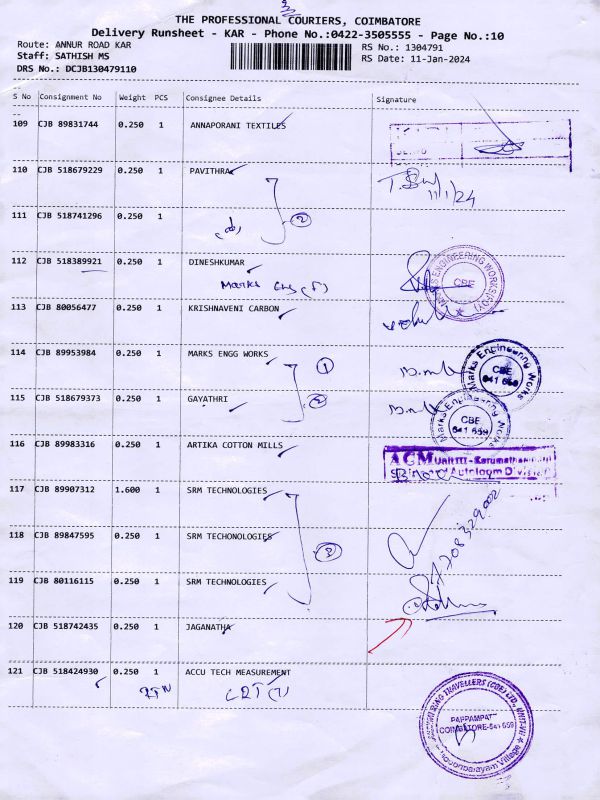 THE PROFESSIONAL COURIERS, COIMBATORE
Delivery Runsheet - KAR - Phone No.:0422-3505555 - Page No.:10
Route: ANNUR ROAD KAR RS No.: 1304791
Staff: SATHISH MS RS Date: 11-Jan-2024
DRS No.: DCJB130479110
S No Consignment No Weight PCS Consignee Details Signature
109 CJB 89831744 0.250 1 ANNAPORANI TEXTILES
110 CJB 518679229 0.250 1 PAVITHRA
11/1/24
111 CJB 518741296 0.250 1
2
112 CJB 518389921 0.250 1 DINESHKUMAR
Marks Eng
MARKS ENGINEERING WORKS
CBE
113 CJB 80056477 0.250 1 KRISHNAVENI CARBON
114 CJB 89953984 0.250 1 MARKS ENGG WORKS
1
Marks Engineering Works
CBE
641 659
115 CJB 518679373 0.250 1 GAYATHRI
2
Marks Engineering Works
CBE
641 659
116 CJB 89983316 0.250 1 ARTIKA COTTON MILLS
AGM Unit III - Karumatham
Autoloom Divis
117 CJB 89907312 1.600 1 SRM TECHNOLOGIES
118 CJB 89847595 0.250 1 SRM TECHONOLOGIES
3
119 CJB 80116115 0.250 1 SRM TECHNOLOGIES
120 CJB 518742435 0.250 1 JAGANATHA
121 CJB 518424930 0.250 1 ACCU TECH MEASUREMENT
PAPPAMPATTI
COIMBATORE-641 659